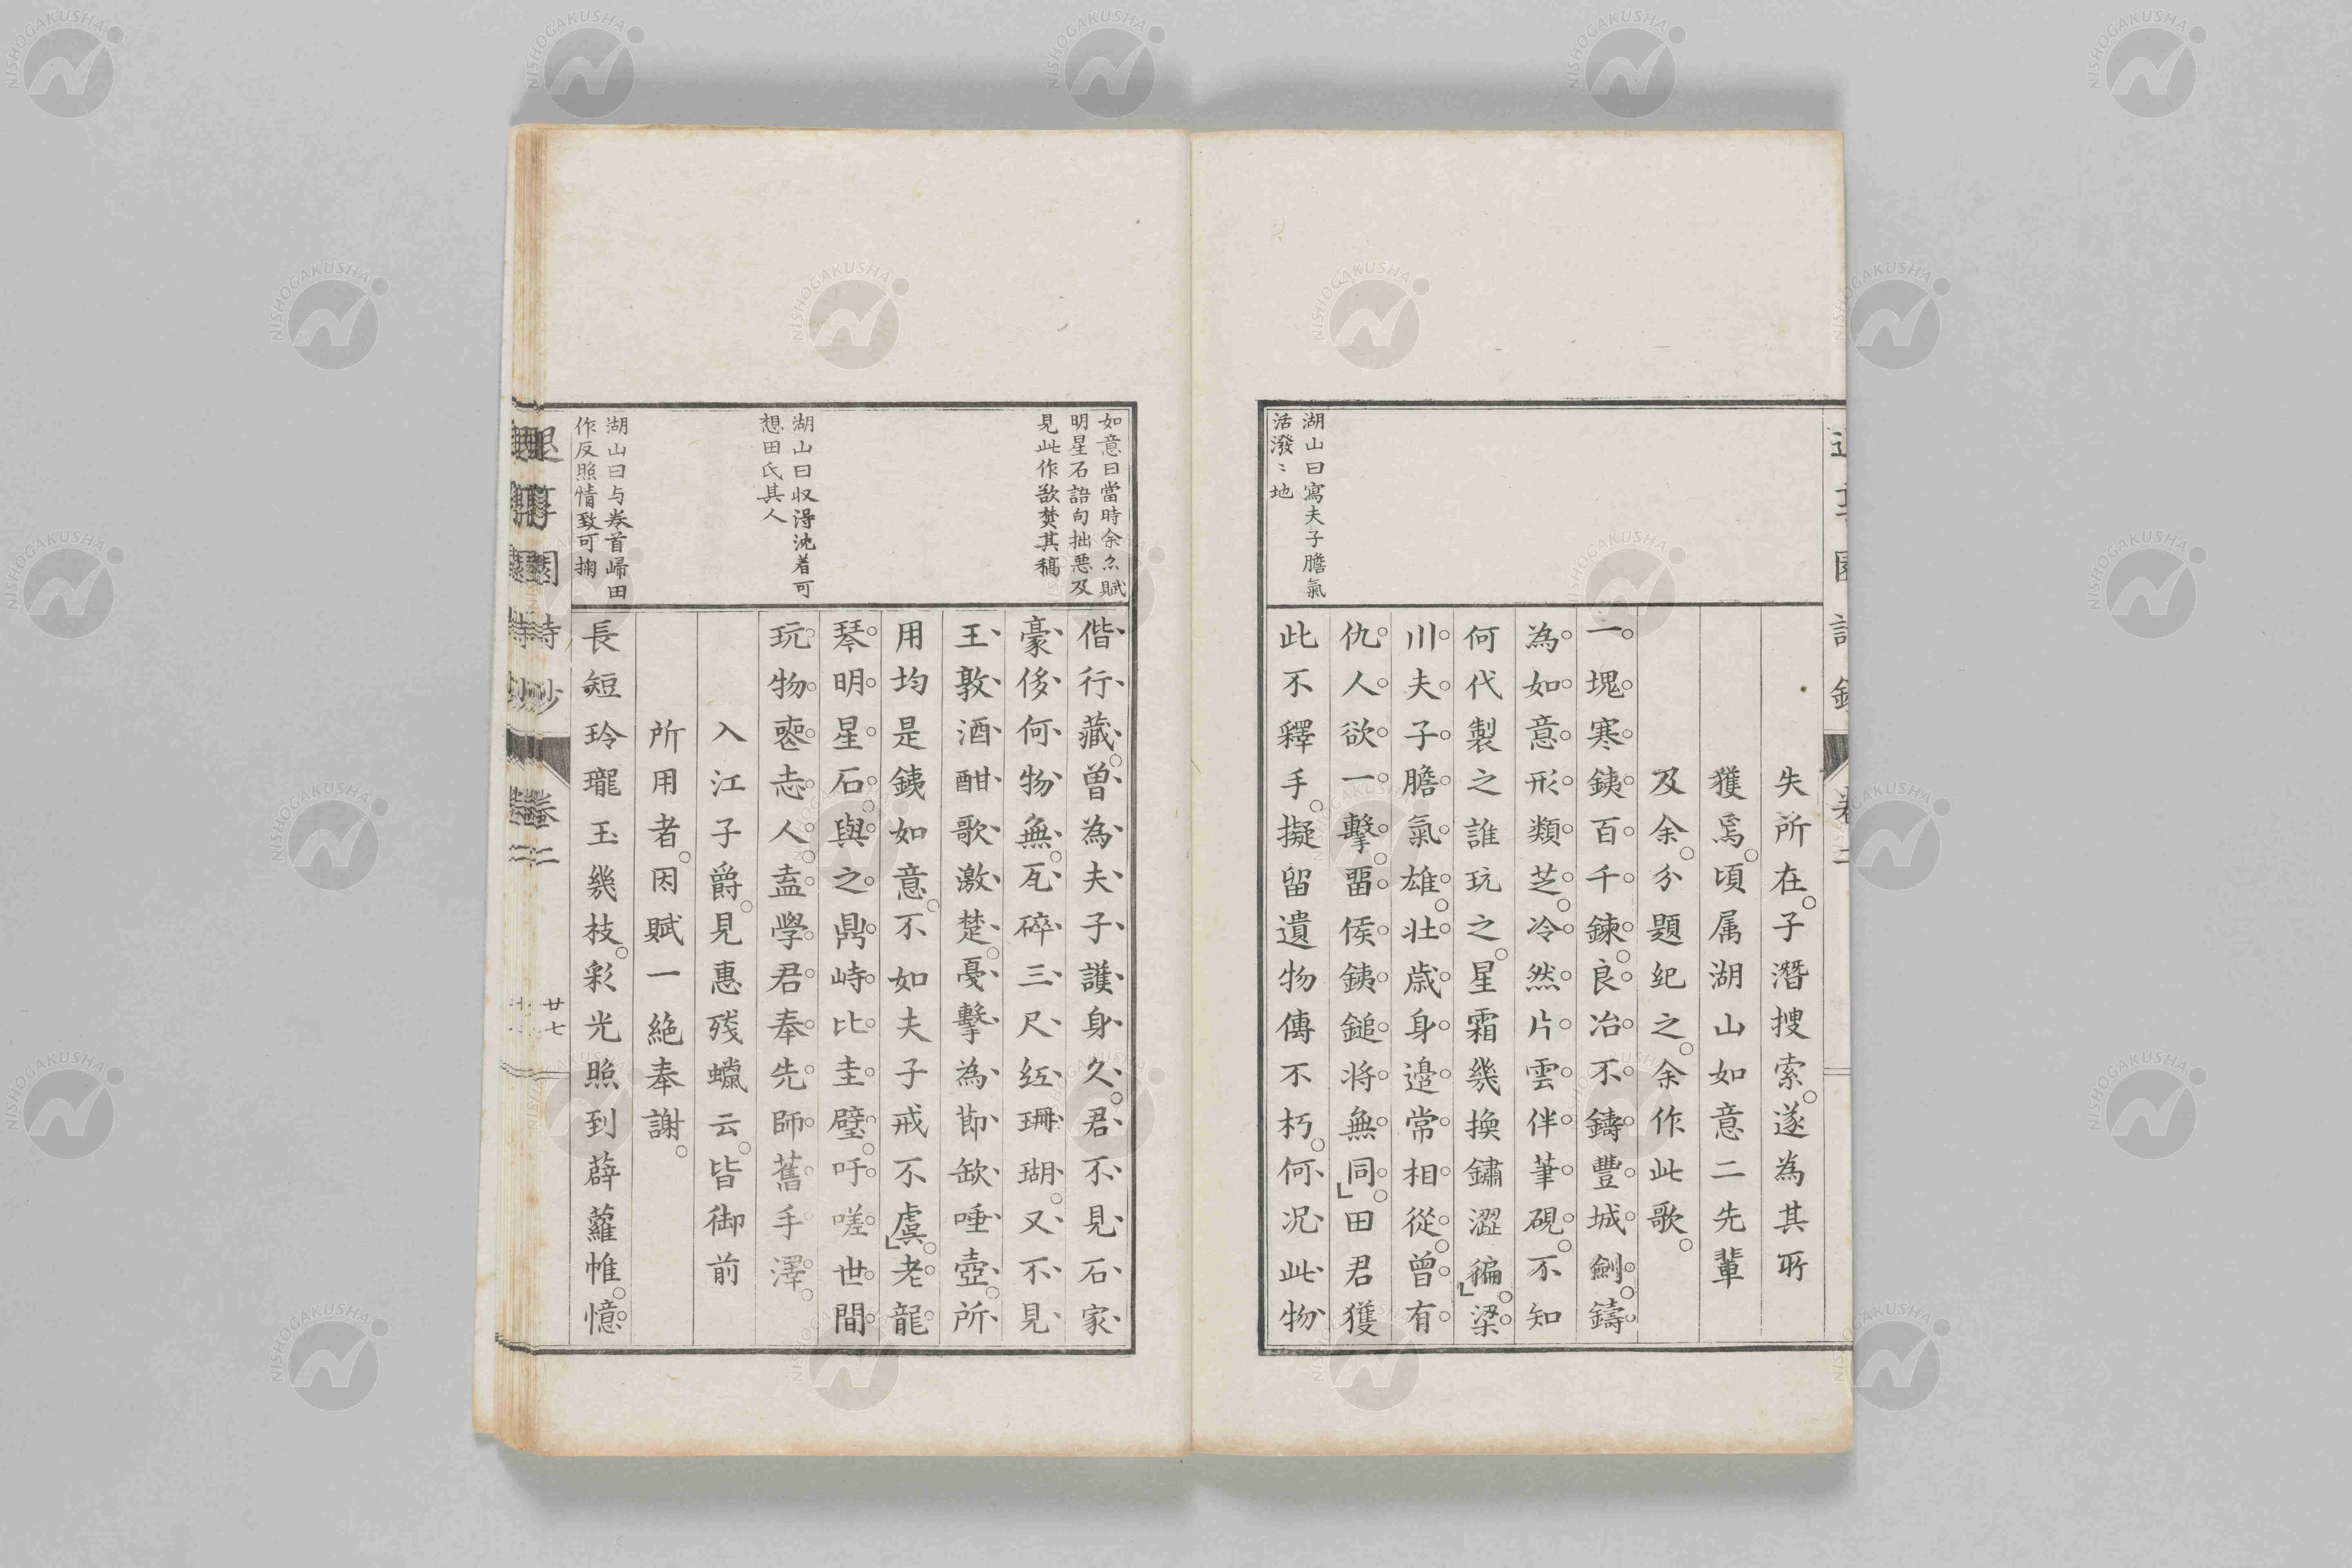 失所在。子潛搜索。遂為其所
獲焉。頃属湖山如意二先輩
及余。分題紀之。余作此歌。
一塊寒銕百千鍊。良冶不鑄豐城劍。鑄
為如意形類芝。冷然片雲伴筆硯。不知
何代製之誰玩之。星霜幾換鏽澀徧。」梁
川夫子膽氣雄。壯歳身邊常相從。曾有
仇人欲一擊。畱侯銕鎚将無同。」田君獲
此不釋手。擬留遺物傳不朽。何况此物
湖山曰寫夫子膽氣
活潑〻地
偕行藏。曽為夫子護身久。君不見石家
豪侈何物無。瓦碎三尺紅珊瑚。又不見
王敦酒酣歌激楚。戞擊為節缺唾壺。所
用均是銕如意。不如夫子戒不虞。」老龍
琴明星石。與之鼎峙比圭璧。吁嗟世間
玩物喪志人。盍學君奉先師舊手澤。
入江子爵。見惠残蠟云。皆御前
所用者。因賦一絶奉謝。
長短玲瓏玉幾枝。彩光照到薜蘿帷。憶
如意曰當時余亦賦
明星石詩句拙惡及
見此作欲焚其稿
湖山曰収得沈着可
想田氏其人
湖山曰与巻首歸田
作反照情致可掬
園詩鈔
卷二
廿七